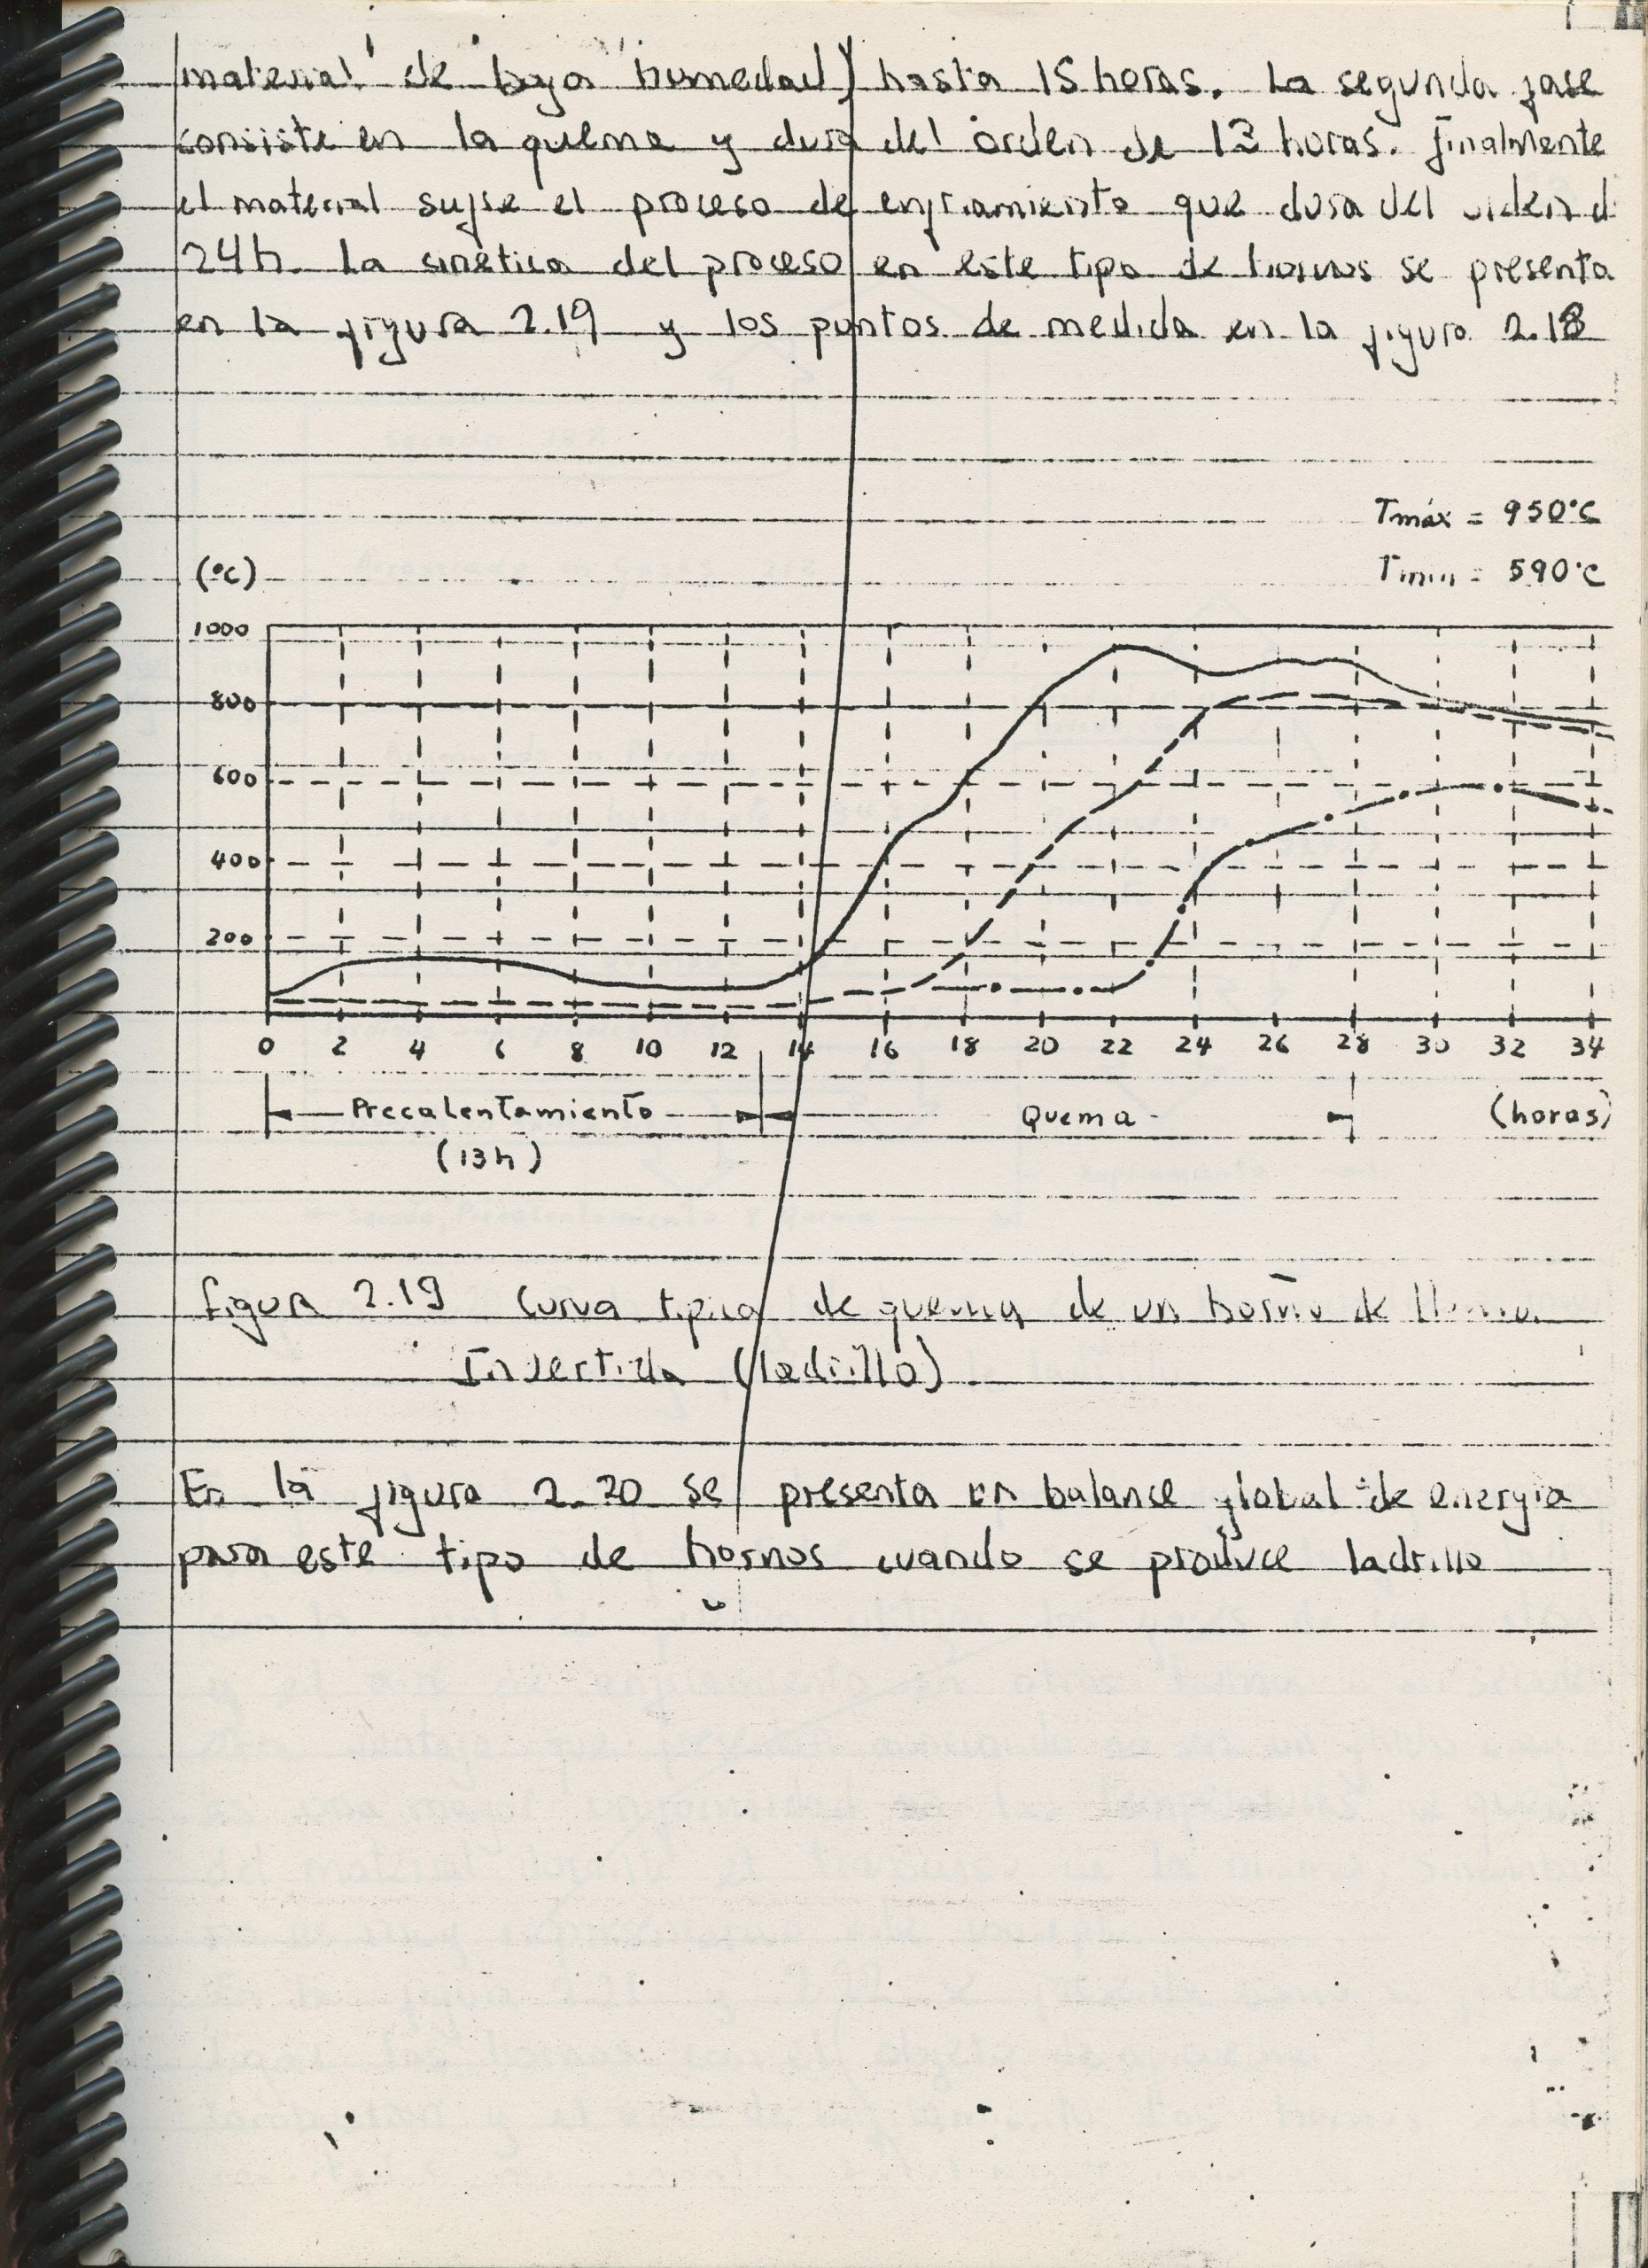 material de baja humedad) hasta 15 horas. La segunda fase
consiste en la quema y dura del orden de 13 horas. finalmente
el material sufre el proceso de enfriamiento que dura del orden d
24h. La cinética del proceso en este tipo de hornos se presenta
en la figura 2.19 y los puntos de medida en la figura 2.18
Tmáx = 950°C
(°C)
Tmin = 590°C
1000
800
600
400
200
0 2 4 6 8 10 12 14 16 18 20 22 24 26 28 30 32 34
Precalentamiento Quema (horas)
(13h)
figura 2.19 Curva tipica de quema de un horno de llama
Invertida (ladrillo)
En la figura 2.20 se presenta un balance global de energia
para este tipo de hornos cuando se produce ladrillo